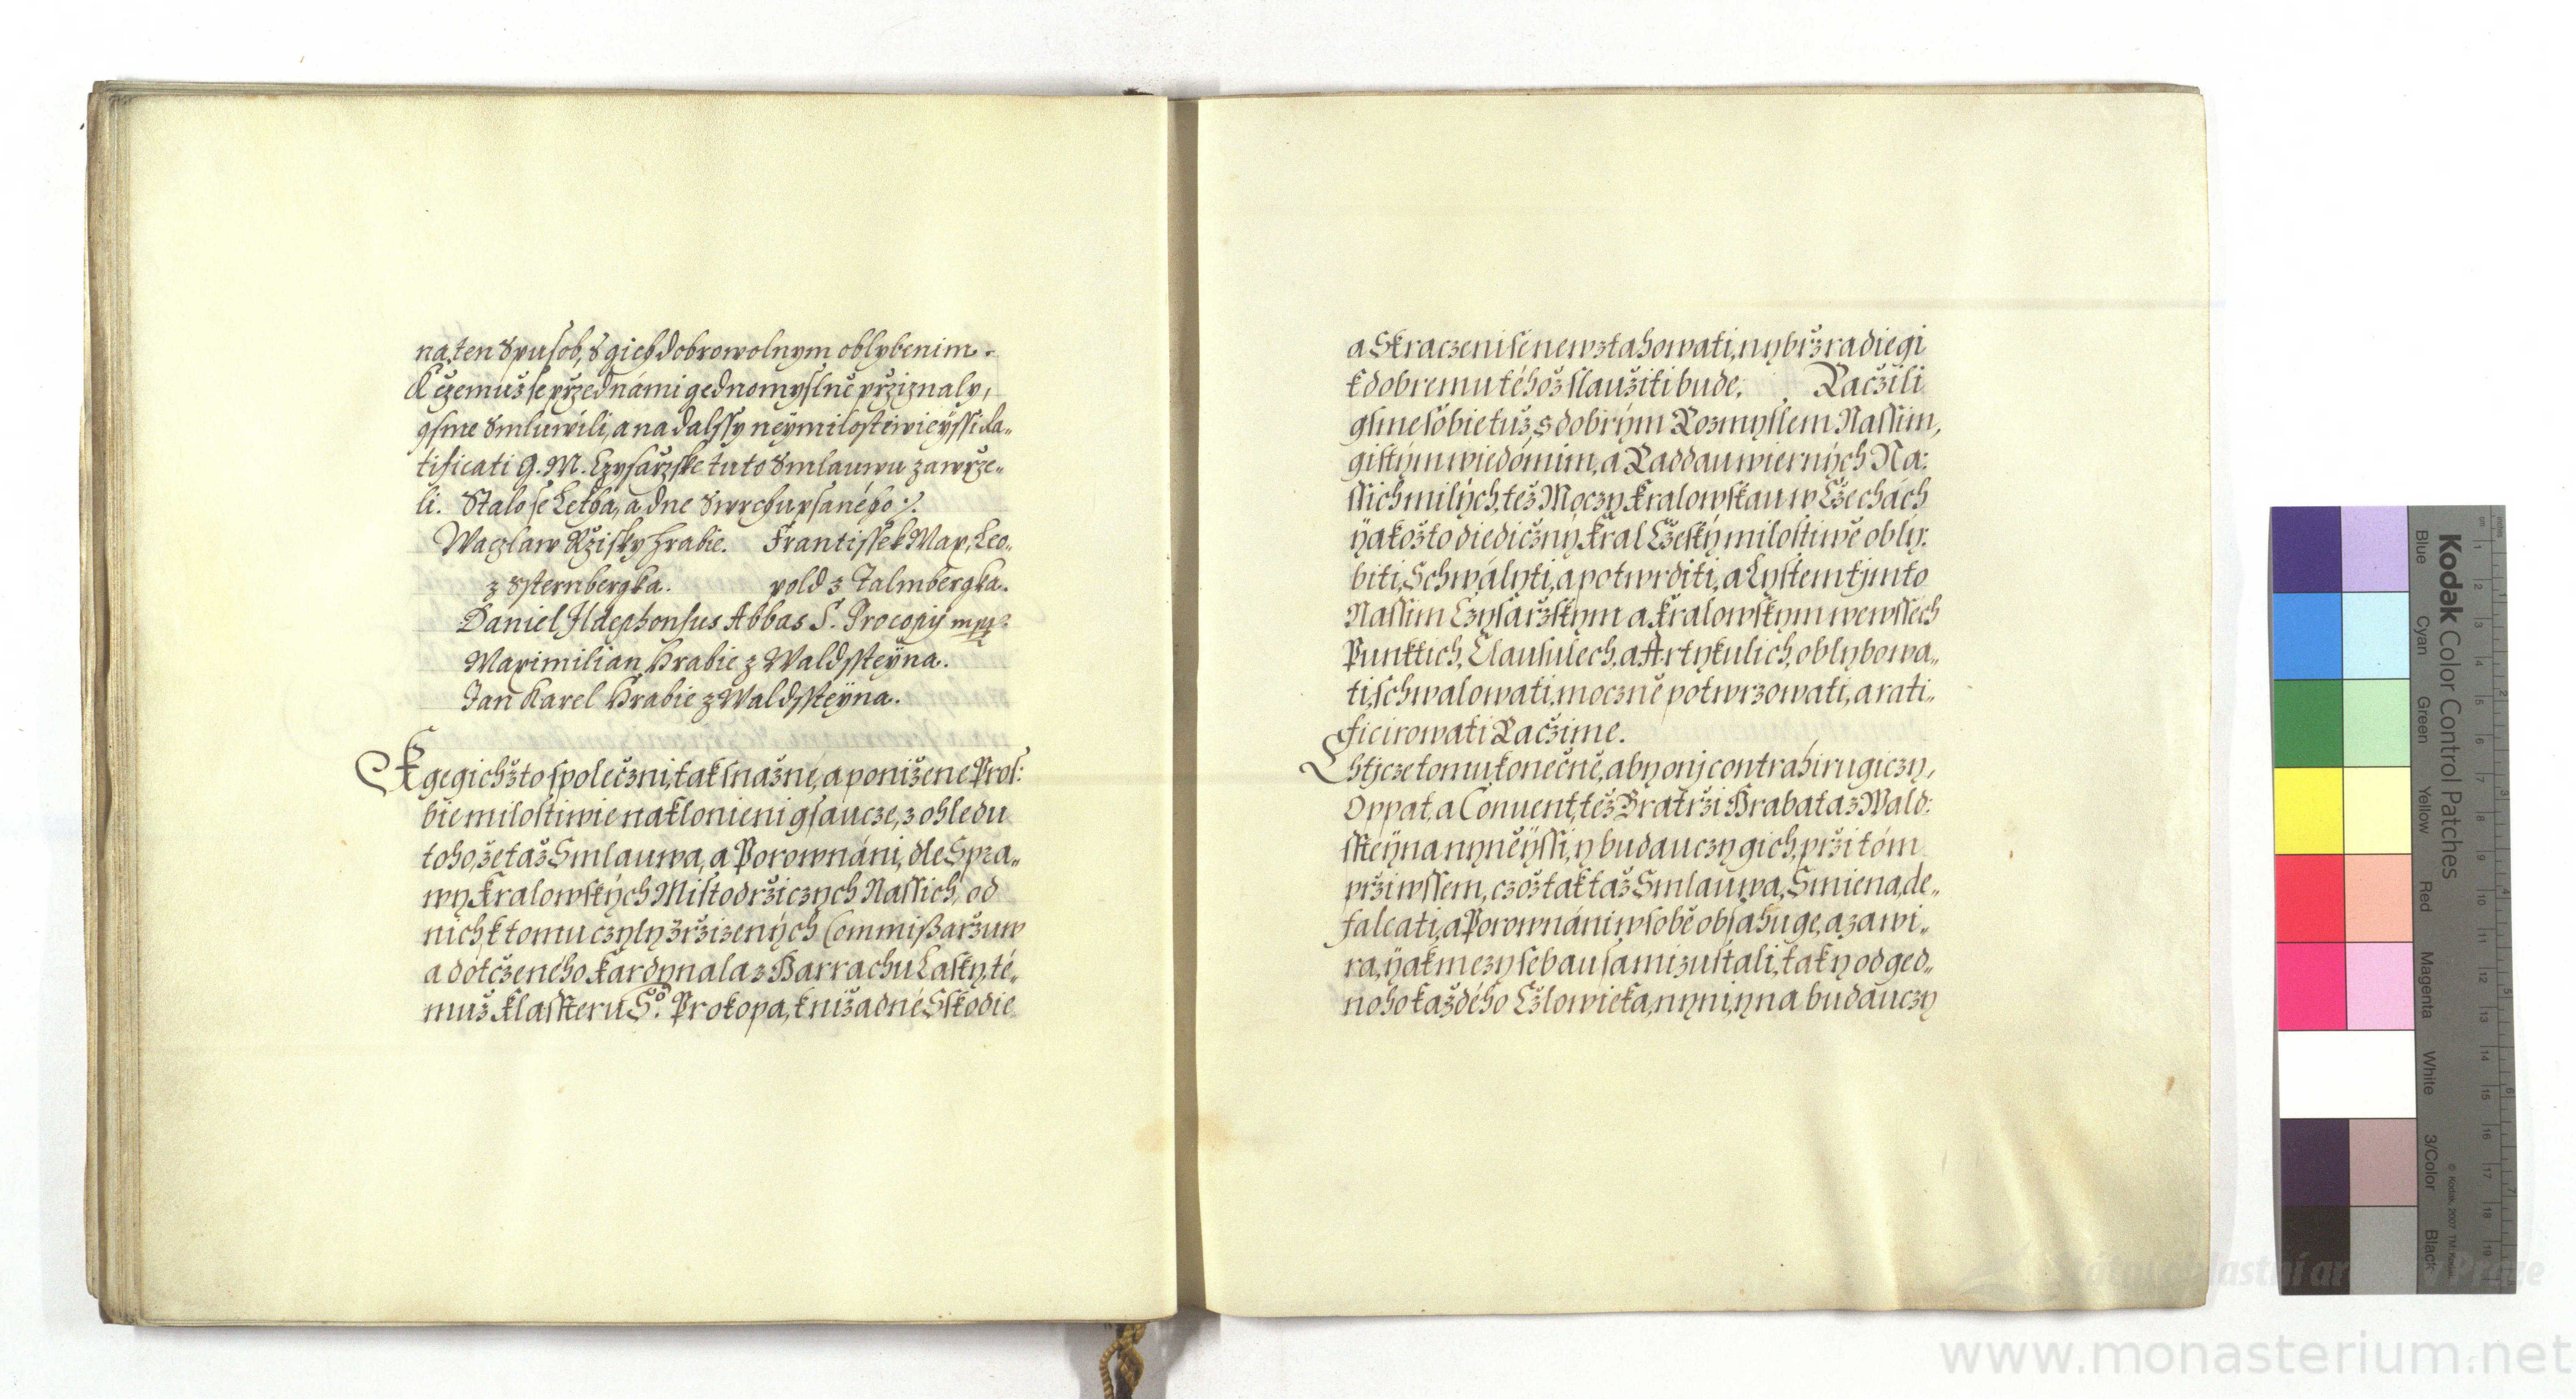 na ten Spusob, s gich dobrowolnym oblybenim.
K czemuž se przed námi gednomyslně prziznaly,
gsme Smluwili, a na dalssy neymilostiwieyssi Ra„
tificati G. M. Czysařzske tuto Smlauwu zawrze„
li. Stalo se Letha, a dne Swrchupsaného ./.
Waczlaw Ržisky Hrabie. Frantissek Max, Leo„
z Ssternbergka. pold z Talmbergka.
Daniel Ildephonsus Abbas S. Procopij mpr
Maximilian Hrabie z Waldssteÿna.
Jan Karel Hrabie z Waldssteÿna.
K gegichžto společzni, tak snažné, a ponižene Pros:
bie milostiwie naklonieni gsaucze, z ohledu
toho, že taž Smlauwa, a Porownáni, dle Spra„
wy Kralowských Mistodržiczych Nassich, od
nich k tomu czyly zržizených Commißaržuw
a dotčzeného Kardynala z Harrachu Lasky, té„
muž Klassteru So. Prokopa, k nižadné Sskodie
a Skraczeni se newztahowati, nybrž radiegi
k dobremu téhož slaužiti bude. Račžili
gsme sobie tuž, s dobrým Rozmyslem Nassim,
gistým wiedomim, a Raddau wierných Na:
ssich milých, též Moczy Kralowskau w Cžechách
ÿakožto diedičzný Kral Cžeský milostiwě obly:
biti, Schwályti, a potwrditi, a Lystem tjmto
Nassim Czysaržskym a Kralowskym we wssech
Punktich, Clausulech, a Artykulich, oblybowa„
ti, schwalowati, moczně potwrzowati, a rati„
ficirowati Račzime.
Chtjcze tomu konečně, aby onj contrahirugiczy,
Oppat, a Conuent, též Bratrži Hrabata z Wald:
ssteÿna nyněÿssi, y budauczy gich, prži tom
prži wssem, czož tak taž Smlauwa, Smiena, de„
falcati, a Porownáni w sobě obsahuge, a zawi„
ra, ÿak mezy sebau sami zustali, tak y od ged„
noho každého Cžlowieka, nyni, y na budauczy
Kodak Color Control Patches
Blue Cyan Green Yellow Red Magenta White 3/Color Black
© Kodak, 2007 TM: Kodak
www.monasterium.net